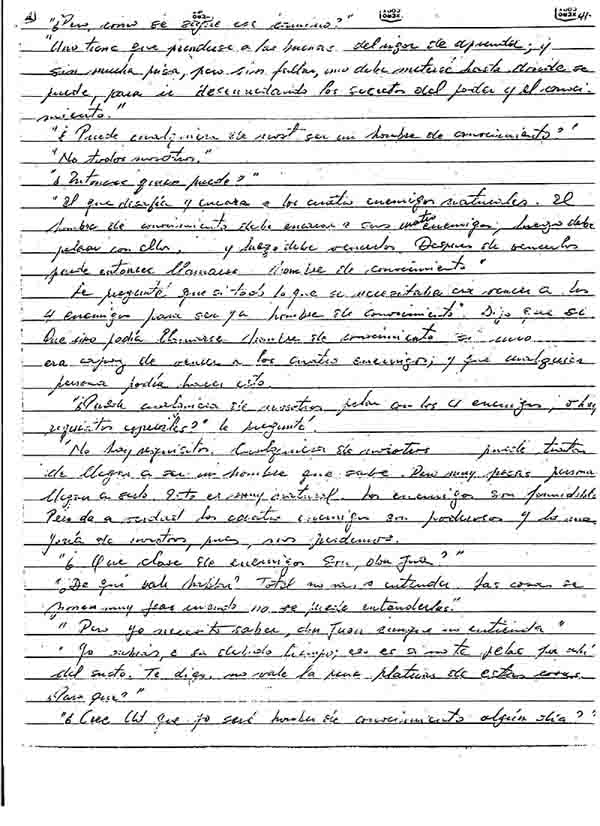 "¿Pero, como se sigue ese camino?"
41-
"Uno tiene que prenderse a las buenas del rigor de aprender; y
sin mucha prisa, pero sin faltar, uno debe meterse hasta donde se
puede, para ir descuidando los secretos del poder y el conoci-
miento."
"¿Puede cualquiera de nosot ser un hombre de conocimiento?"
"No todos nosotros."
"¿Entonces quien puede?"
"El que desafía y encara a los cuatro enemigos naturales. El
hombre de conocimiento debe encarar a sus cuatro enemigos, luego debe
pelear con ellos, y luego debe vencerlos. Despues de vencerlos
puede entonces llamarse hombre de conocimiento"
Le pregunté que si todo lo que se necesitaba era vencer a los
4 enemigos para ser ya hombre de conocimiento". Dijo que si
Que uno podía llamarse hombre de conocimiento si uno
era capaz de vencer a los cuatro enemigos; y que cualquier
persona podía hacer esto.
"¿Puede cualquiera de nosotros pelear con los 4 enemigos, o hay
requisitos especiales?" le pregunté.
"No hay requisitos. Cualquiera de nosotros puede tratar
de llegar a ser un hombre que sabe. Pero muy pocas persona
llegan a serlo. Esto es muy natural. Los enemigos son formidible
de verdad los cuatro enemigos son poderosos y la ma
yoría de nosotros, pues, nos perdemos.
"¿Que clase de enemigos son, don Juan?"
"¿De qué vale hablar? Total no vas a entender. Las cosas se
ponen muy feas cuando no se puede entenderlas."
"Pero yo necesito saber, don Juan aunque no entienda"
"Ya sabrás, a su debido tiempo; eso es si no te pelas por ahí
del susto. Te digo, no vale la pena platicar de estas cosas
¿Para que?"
"¿Cree Ud que yo seré hombre de conocimiento algún día?"